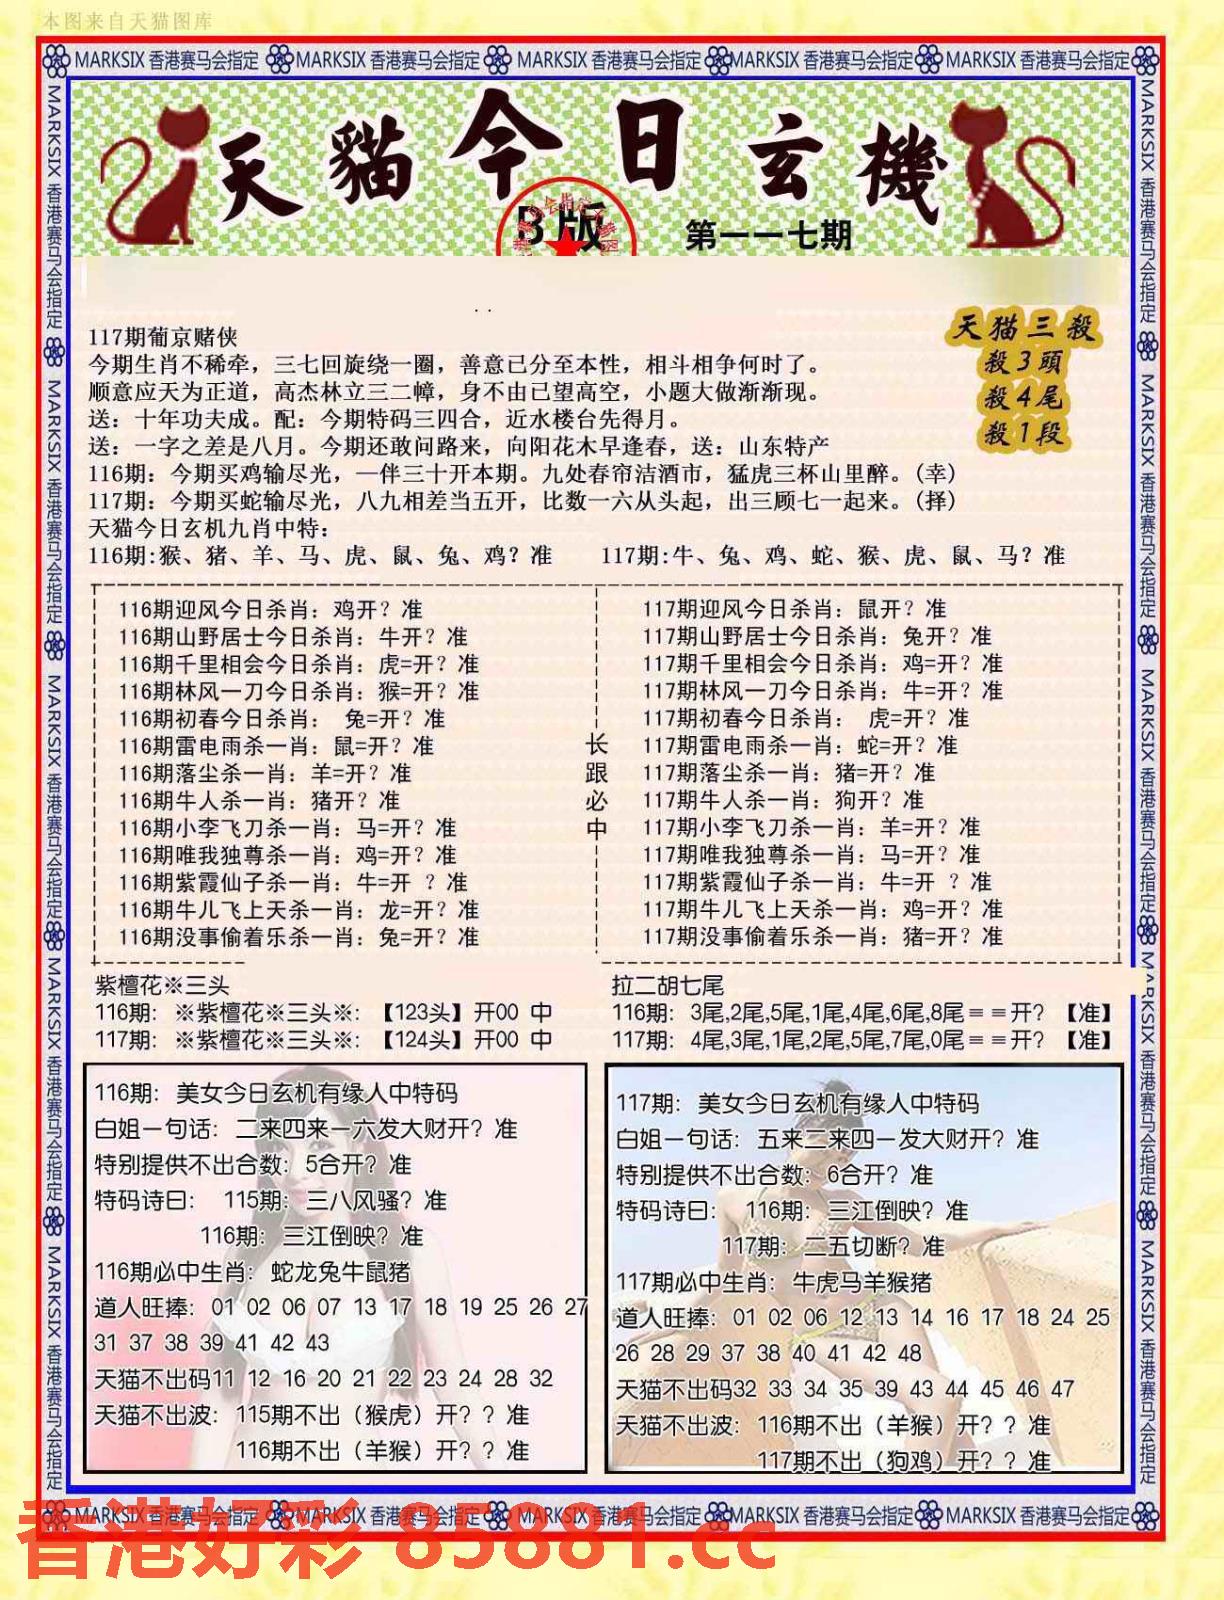 本图来自天猫图库
MARKSIX 香港赛马会指定 MARKSIX 香港赛马会指定 MARKSIX 香港赛马会指定 MARKSIX 香港赛马会指定 MARKSIX 香港赛马会指定
天貓今日玄機
B版
第一一七期
117期葡京赌侠
今期生肖不稀牵，三七回旋绕一圈，善意已分至本性，相斗相争何时了。
顺意应天为正道，高杰林立三二幛，身不由已望高空，小题大做渐渐现。
送：十年功夫成。配：今期特码三四合，近水楼台先得月。
送：一字之差是八月。今期还敢问路来，向阳花木早逢春，送：山东特产
116期：今期买鸡输尽光，一伴三十开本期。九处春帘洁酒市，猛虎三杯山里醉。(幸)
117期：今期买蛇输尽光，八九相差当五开，比数一六从头起，出三顾七一起来。(择)
天猫三殺
殺3頭
殺4尾
殺1段
天猫今日玄机九肖中特：
116期:猴、猪、羊、马、虎、鼠、兔、鸡？准 117期:牛、兔、鸡、蛇、猴、虎、鼠、马？准
116期迎风今日杀肖：鸡开？准
116期山野居士今日杀肖：牛开？准
116期千里相会今日杀肖：虎=开？准
116期林风一刀今日杀肖：猴=开？准
116期初春今日杀肖： 兔=开？准
116期雷电雨杀一肖：鼠=开？准
116期落尘杀一肖：羊=开？准
116期牛人杀一肖：猪开？准
116期小李飞刀杀一肖：马=开？准
116期唯我独尊杀一肖：鸡=开？准
116期紫霞仙子杀一肖：牛=开 ？准
116期牛儿飞上天杀一肖：龙=开？准
116期没事偷着乐杀一肖：兔=开？准
长跟必中
117期迎风今日杀肖：鼠开？准
117期山野居士今日杀肖：兔开？准
117期千里相会今日杀肖：鸡=开？准
117期林风一刀今日杀肖：牛=开？准
117期初春今日杀肖： 虎=开？准
117期雷电雨杀一肖：蛇=开？准
117期落尘杀一肖：猪=开？准
117期牛人杀一肖：狗开？准
117期小李飞刀杀一肖：羊=开？准
117期唯我独尊杀一肖：马=开？准
117期紫霞仙子杀一肖：牛=开 ？准
117期牛儿飞上天杀一肖：鸡=开？准
117期没事偷着乐杀一肖：猪=开？准
紫檀花※三头
116期：※紫檀花※三头※：【123头】开00 中
117期：※紫檀花※三头※：【124头】开00 中
拉二胡七尾
116期：3尾,2尾,5尾,1尾,4尾,6尾,8尾＝＝开？【准】
117期：4尾,3尾,1尾,2尾,5尾,7尾,0尾＝＝开？【准】
116期：美女今日玄机有缘人中特码
白姐一句话：二来四来一六发大财开？准
特别提供不出合数：5合开？准
特码诗曰： 115期：三八风骚？准
116期：三江倒映？准
116期必中生肖：蛇龙兔牛鼠猪
道人旺捧：01 02 06 07 13 17 18 19 25 26 27
31 37 38 39 41 42 43
天猫不出码11 12 16 20 21 22 23 24 28 32
天猫不出波：115期不出（猴虎）开？？准
116期不出（羊猴）开？？准
117期：美女今日玄机有缘人中特码
白姐一句话：五来二来四一发大财开？准
特别提供不出合数：6合开？准
特码诗曰： 116期：三江倒映？准
117期：二五切断？准
117期必中生肖：牛虎马羊猴猪
道人旺捧：01 02 06 12 13 14 16 17 18 24 25
26 28 29 37 38 40 41 42 48
天猫不出码32 33 34 35 39 43 44 45 46 47
天猫不出波：116期不出（羊猴）开？？准
117期不出（狗鸡）开？？准
MARKSIX 香港赛马会指定 MARKSIX 香港赛马会指定 MARKSIX 香港赛马会指定 MARKSIX 香港赛马会指定 MARKSIX 香港赛马会指定
MARKSIX 香港赛马会指定 MARKSIX 香港赛马会指定 MARKSIX 香港赛马会指定 MARKSIX 香港赛马会指定 MARKSIX 香港赛马会指定
MARKSIX 香港赛马会指定 MARKSIX 香港赛马会指定 MARKSIX 香港赛马会指定 MARKSIX 香港赛马会指定 MARKSIX 香港赛马会指定
香港好彩 85881.cc